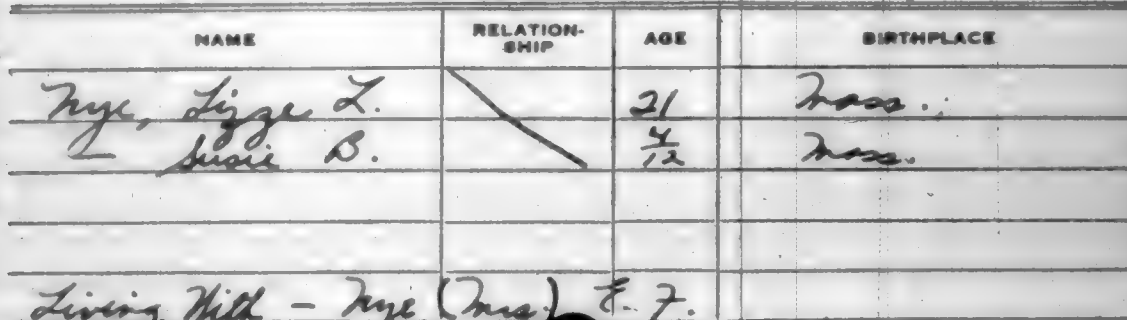 NAME RELATION-SHIP AGE BIRTHPLACE
Nye, Lizze L. 21 Mass.
— Susie B. 4/12 Mass.
Living With — Nye (Mrs.) E. F.